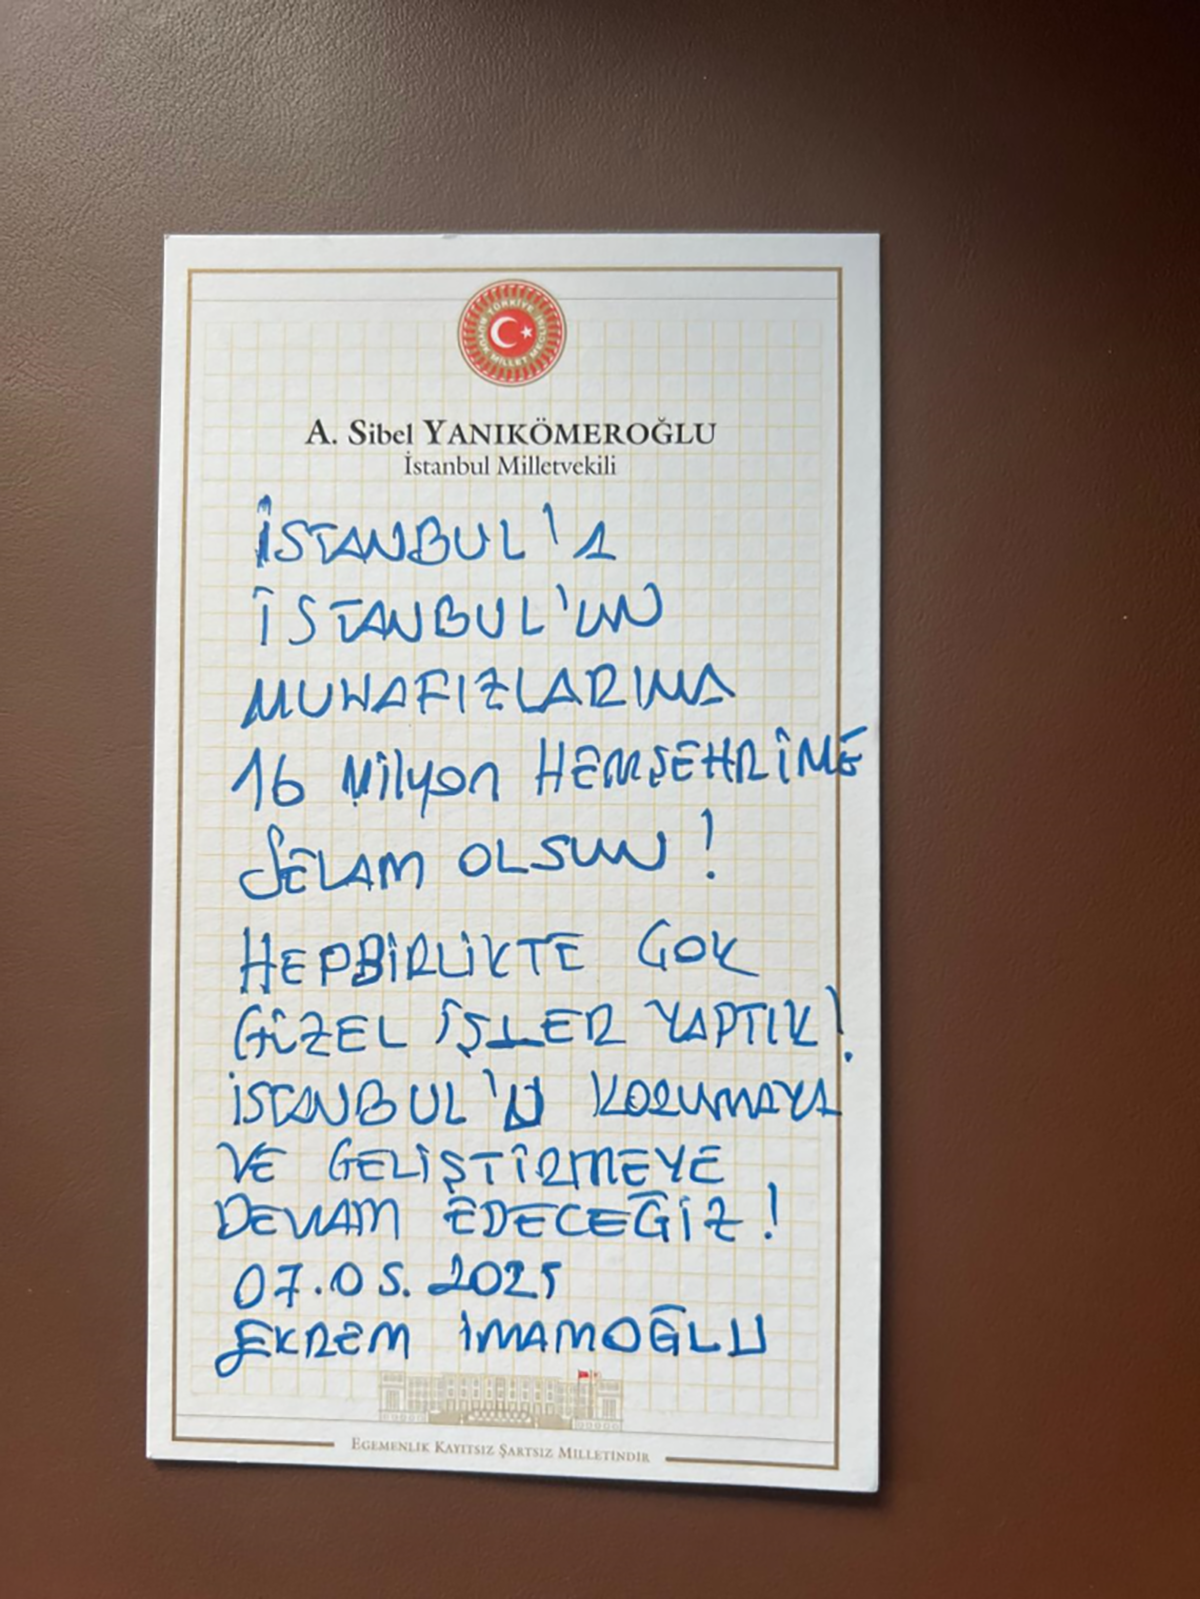 TÜRKİYE BÜYÜK MİLLET MECLİSİ
A. Sibel YANIKÖMEROĞLU
İstanbul Milletvekili
İSTANBUL'A
İSTANBUL'UN
MUHAFIZLARINA
16 Milyon HEMŞEHRİME
SELAM OLSUN!
HEPBİRLİKTE ÇOK
GÜZEL İŞLER YAPTIK!
İSTANBUL'U KORUMAYA
VE GELİŞTİRMEYE
DEVAM EDECEĞİZ!
07.05.2025
EKREM İMAMOĞLU
EGEMENLİK KAYITSIZ ŞARTSIZ MİLLETİNDİR